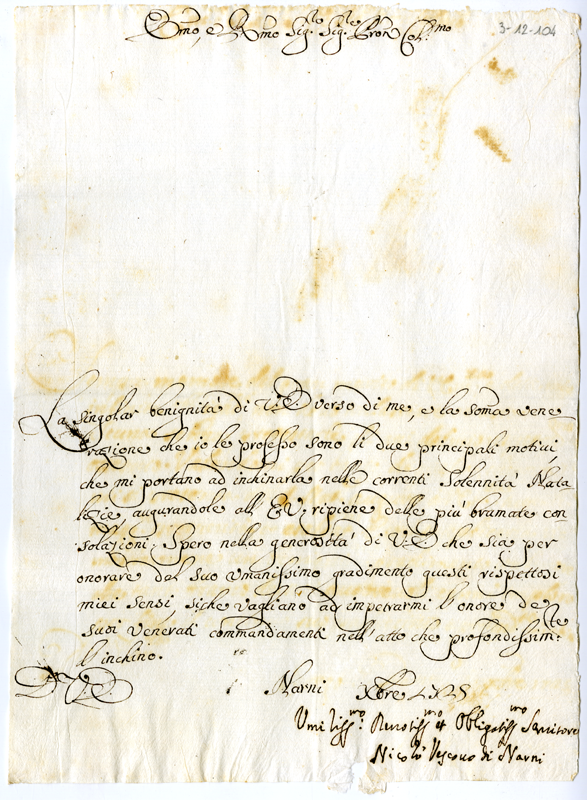 Emo, e Rmo Sig.re Sig.re Prone Col.mo
3-12-104
La singolar benignità di V.E. verso di me, e la soma vene-
razione che io le professo sono li due principali motivi
che mi portano ad inchinarla nelle correnti Solennità Nata-
lizie, augurandole all' E.V. ripiene delle più bramate con-
solazioni. Spero nella generosità di V.E. che sia per
onorare del suo Umanissimo gradimento questi rispettosi
miei sensi, siche vagliano ad impetrarmi l'onore de
suoi venerati commandamenti nell' atto che profondissim.te
l'inchino.
D. V.E.
Narni Xbre
Umiliss.mo Devotiss.mo et Obligatiss.mo Servitore
Nicolò Vescovo di Narni